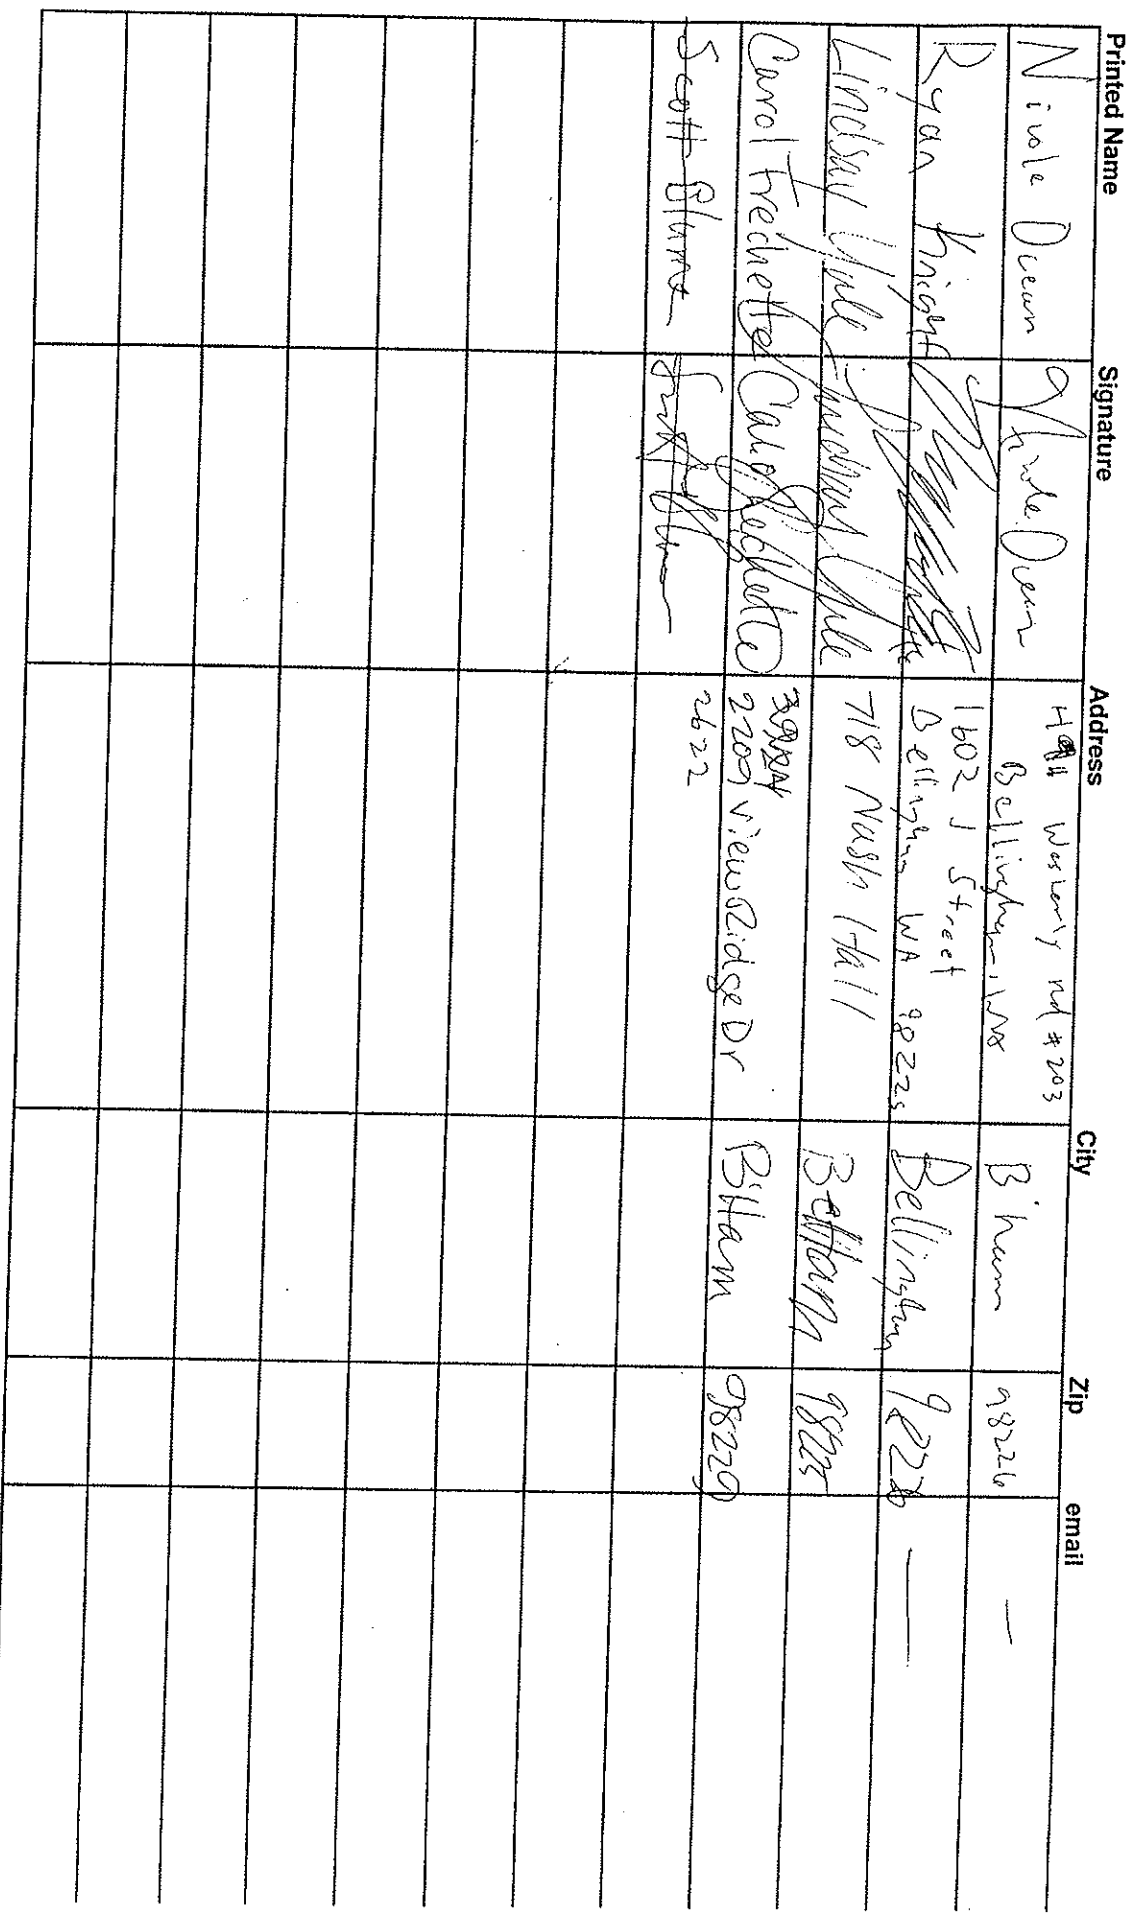 Printed Name Signature Address City Zip email
Nicole Ocean Nicole Ocean Westerly rd #203 B'ham 98226 —
Bellingham, WA
Ryan Knight 1602 J Street Bellingham —
Bellingham WA 98225
Lindsay Yale Lindsay Yale 718 Nash Hall Bellham 98225
Carol Frechette Carol Frechette 2209 View Ridge Dr B'Ham 98229
Scott Blume 2622